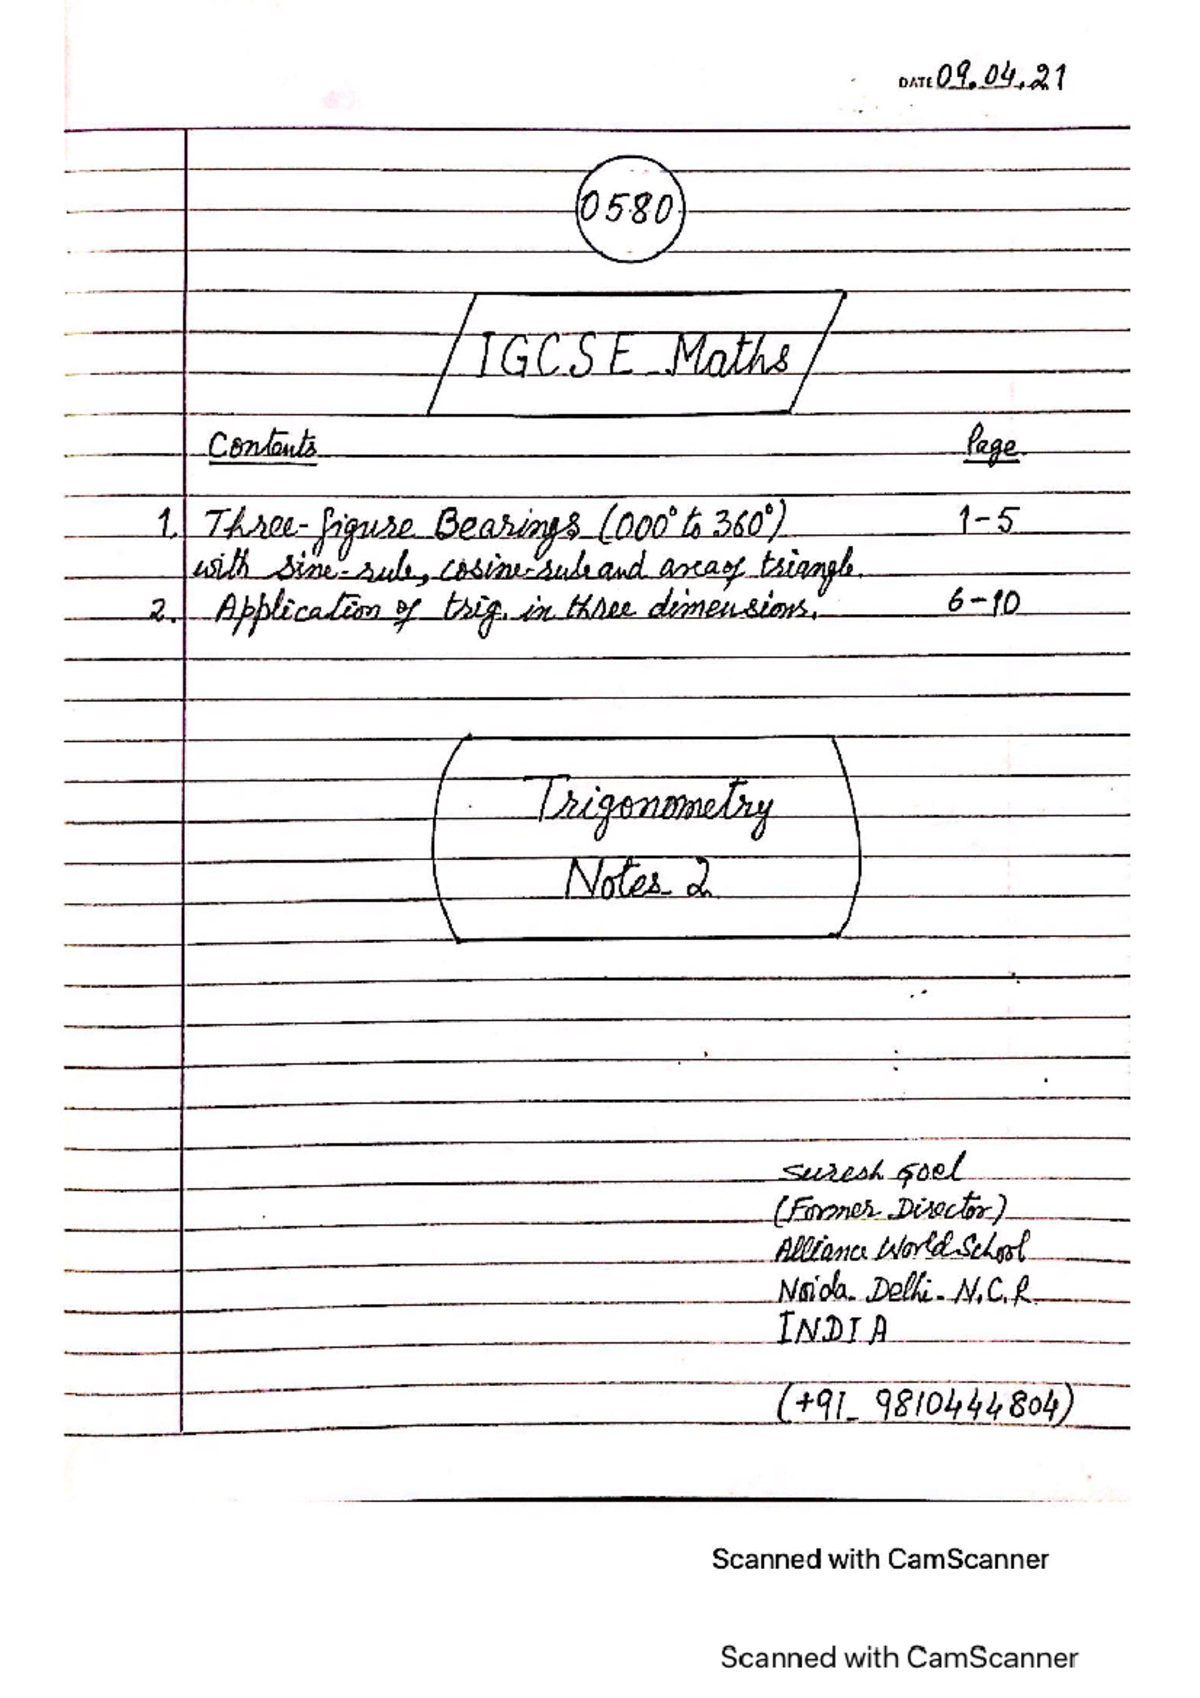 DATE 09.04.21
0580
IGCSE Maths
Contents Page
1. Three-figure Bearings (000° to 360°) 1-5
with sine-rule, cosine-rule and area of triangle.
2. Application of trig. in three dimensions. 6-10
Trigonometry
Notes 2
Suresh Goel
(Former Director)
Alliance World School
Noida. Delhi. N.C.R.
INDIA
(+91_ 9810444804)
Scanned with CamScanner
Scanned with CamScanner